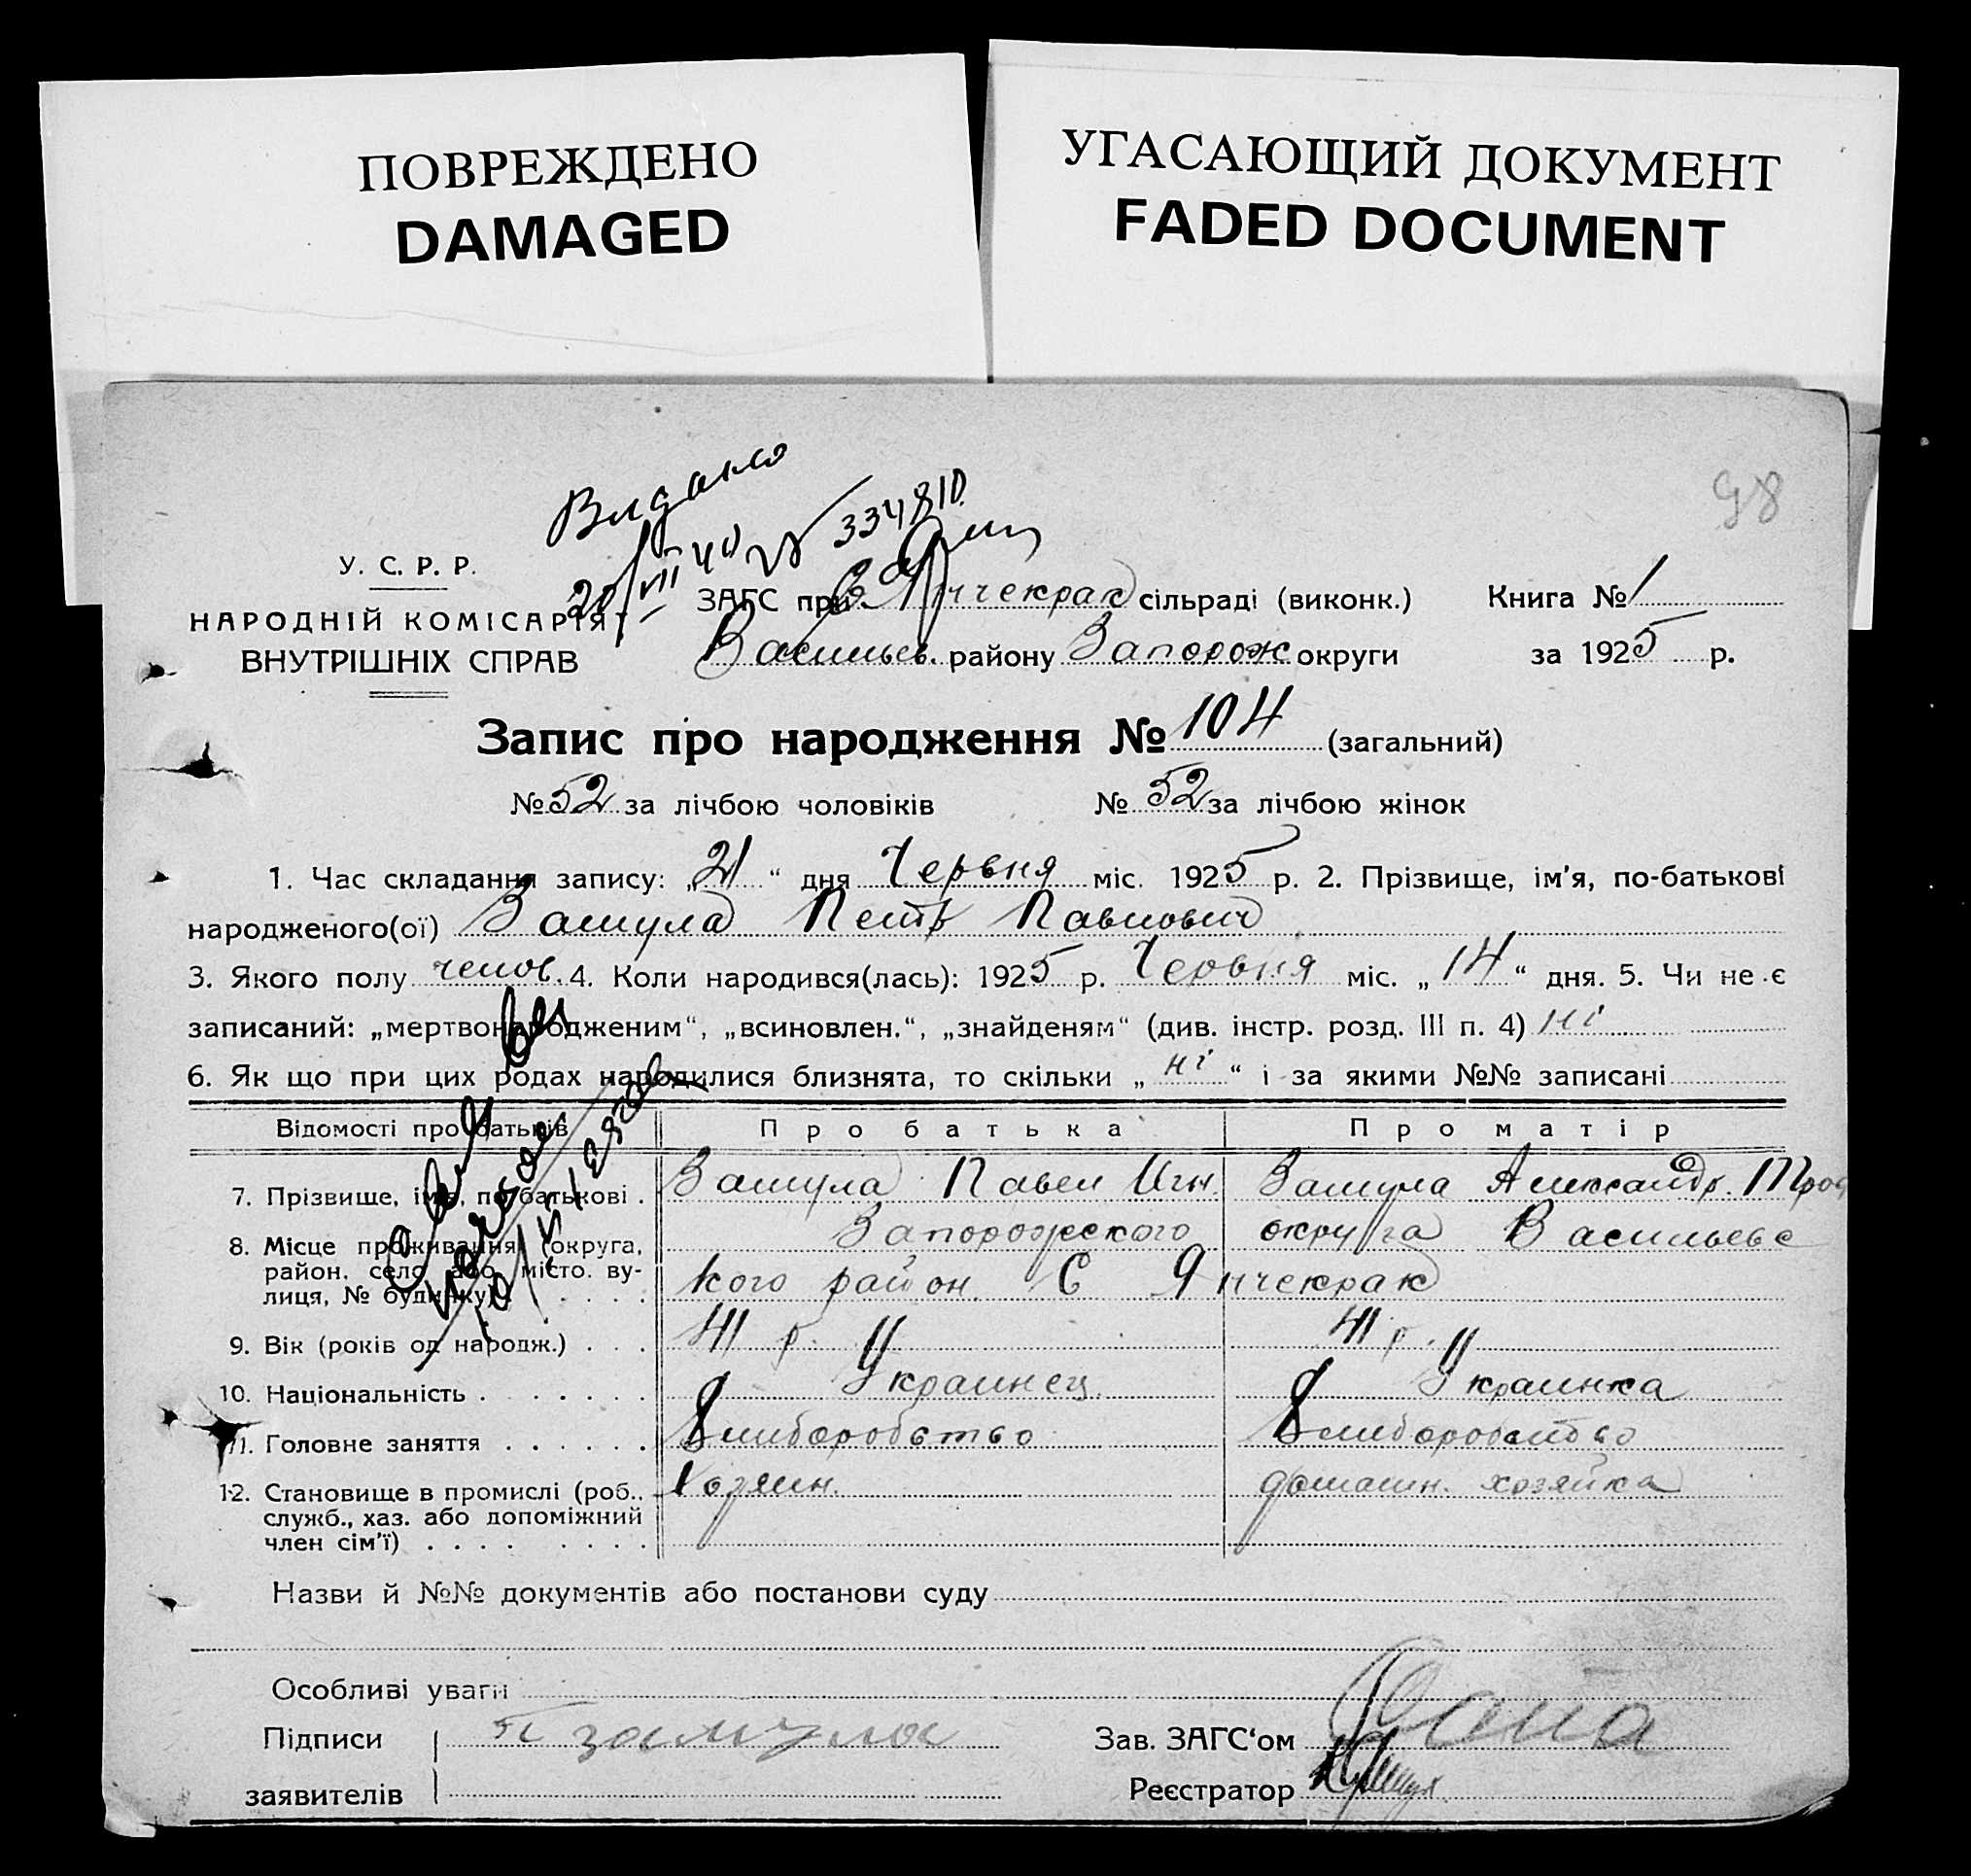 ПОВРЕЖДЕНО
DAMAGED
УГАСАЮЩИЙ ДОКУМЕНТ
FADED DOCUMENT
98
Видано
20/VII 40 334810
У. С. Р. Р.
НАРОДНІЙ КОМІСАРІЯТ
ВНУТРІШНІХ СПРАВ
ЗАГС при С. Янчекрак сільраді (виконк.) Книга № 1
Васильев. району Запорож округи за 1925 р.
Запис про народження № 104 (загальний)
№ 52 за лічбою чоловіків № 52 за лічбою жінок
1. Час складання запису: „21“ дня Червня міс. 1925 р. 2. Прізвище, ім'я, по-батькові
народженого(ої) Замула Петр Павлович
3. Якого полу челов. 4. Коли народився(лась): 1925 р. Червня міс. „14“ дня. 5. Чи не є
записаний: „мертвонародженим“, „всиновлен.“, „знайденям“ (див. інстр. розд. III п. 4) ні
6. Як що при цих родах народилися близнята, то скільки „ні“ і за якими №№ записані
Відомості про батьків Про батька Про матір
7. Прізвище, ім'я, по-батькові . Замула Павел Игн. Замула Александр. Троф
8. Місце проживання (округа, Запорожского округа Васильевс
район, село або місто, ву- кого район. С Янчекрак
лиця, № будинку) . . . .
9. Вік (років од народж.) . . . 41 р. 41 р.
10. Національність . . . . . Украинец Украинка
11. Головне заняття . . . . . . Хлиборобство Хлиборобство
12. Становище в промислі (роб., Хозяин. домашн. хозяйка
служб., хаз. або допоміжний
член сім'ї) . . . . . . . .
Назви й №№ документів або постанови суду
Особливі уваги
Підписи П Замула Зав. ЗАГС'ом
заявителів Реєстратор